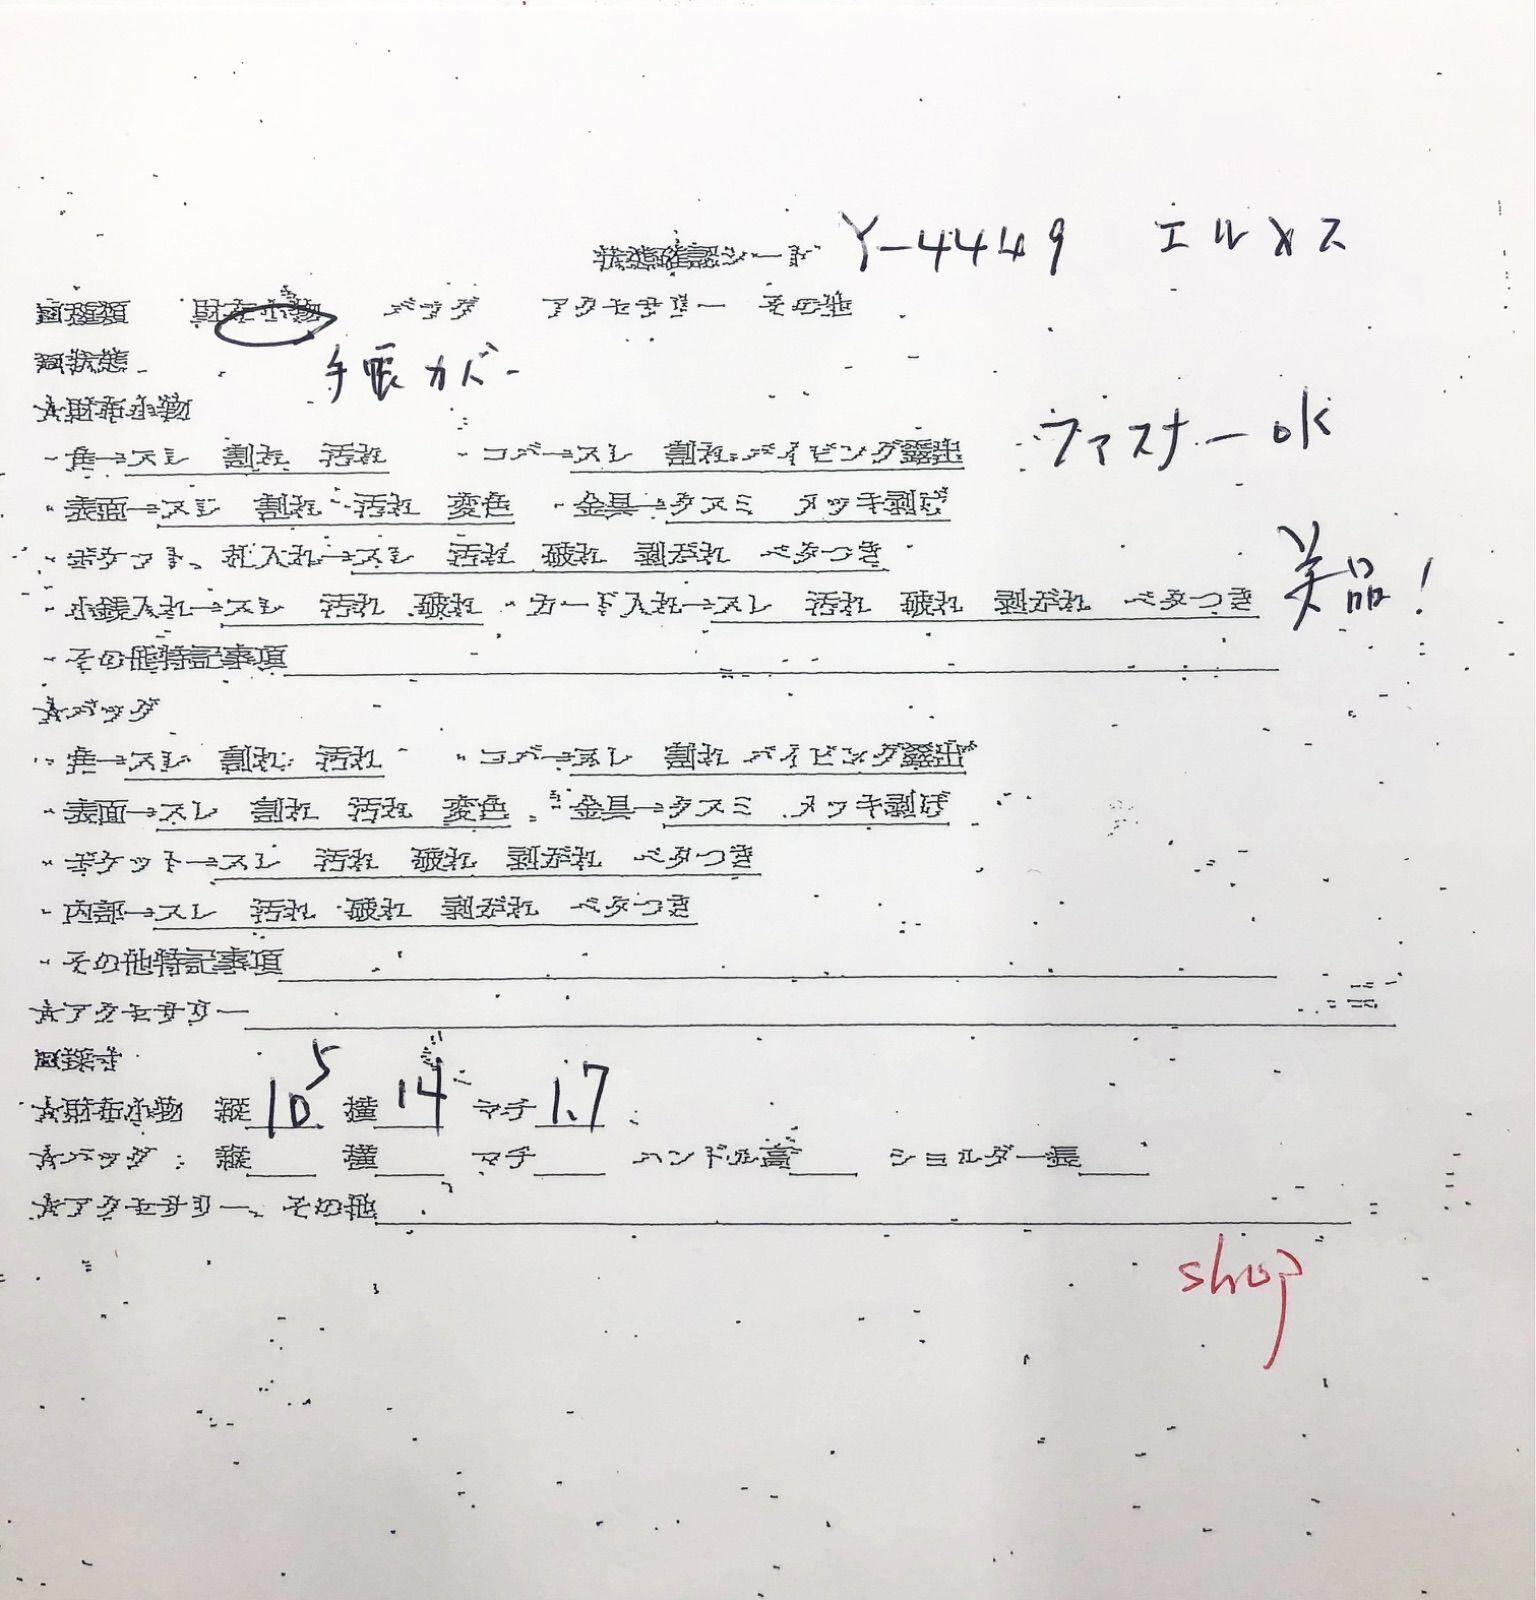 状態確認シート Y-4449 エルメス
□種類 財布小物 バッグ アクセサリー その他
□状態 手帳カバー
☆財布小物
・角→スレ 割れ 汚れ ・コバ→スレ 割れ パイピング露出 ファスナーOK
・表面→スレ 割れ 汚れ 変色 ・金具→クスミ メッキ剥げ
・ポケット、札入れ→スレ 汚れ 破れ 剥がれ ベタつき
・小銭入れ→スレ 汚れ 破れ ・カード入れ→スレ 汚れ 破れ 剥がれ ベタつき 美品!
・その他特記事項
☆バッグ
・角→スレ 割れ 汚れ ・コバ→スレ 割れ パイピング露出
・表面→スレ 割れ 汚れ 変色 ・金具→クスミ メッキ剥げ
・ポケット→スレ 汚れ 破れ 剥がれ ベタつき
・内部→スレ 汚れ 破れ 剥がれ ベタつき
・その他特記事項
☆アクセサリー
□採寸
☆財布小物 縦10.5 横14 マチ1.7
☆バッグ 縦 横 マチ ハンドル高 ショルダー長
☆アクセサリー、その他
shop